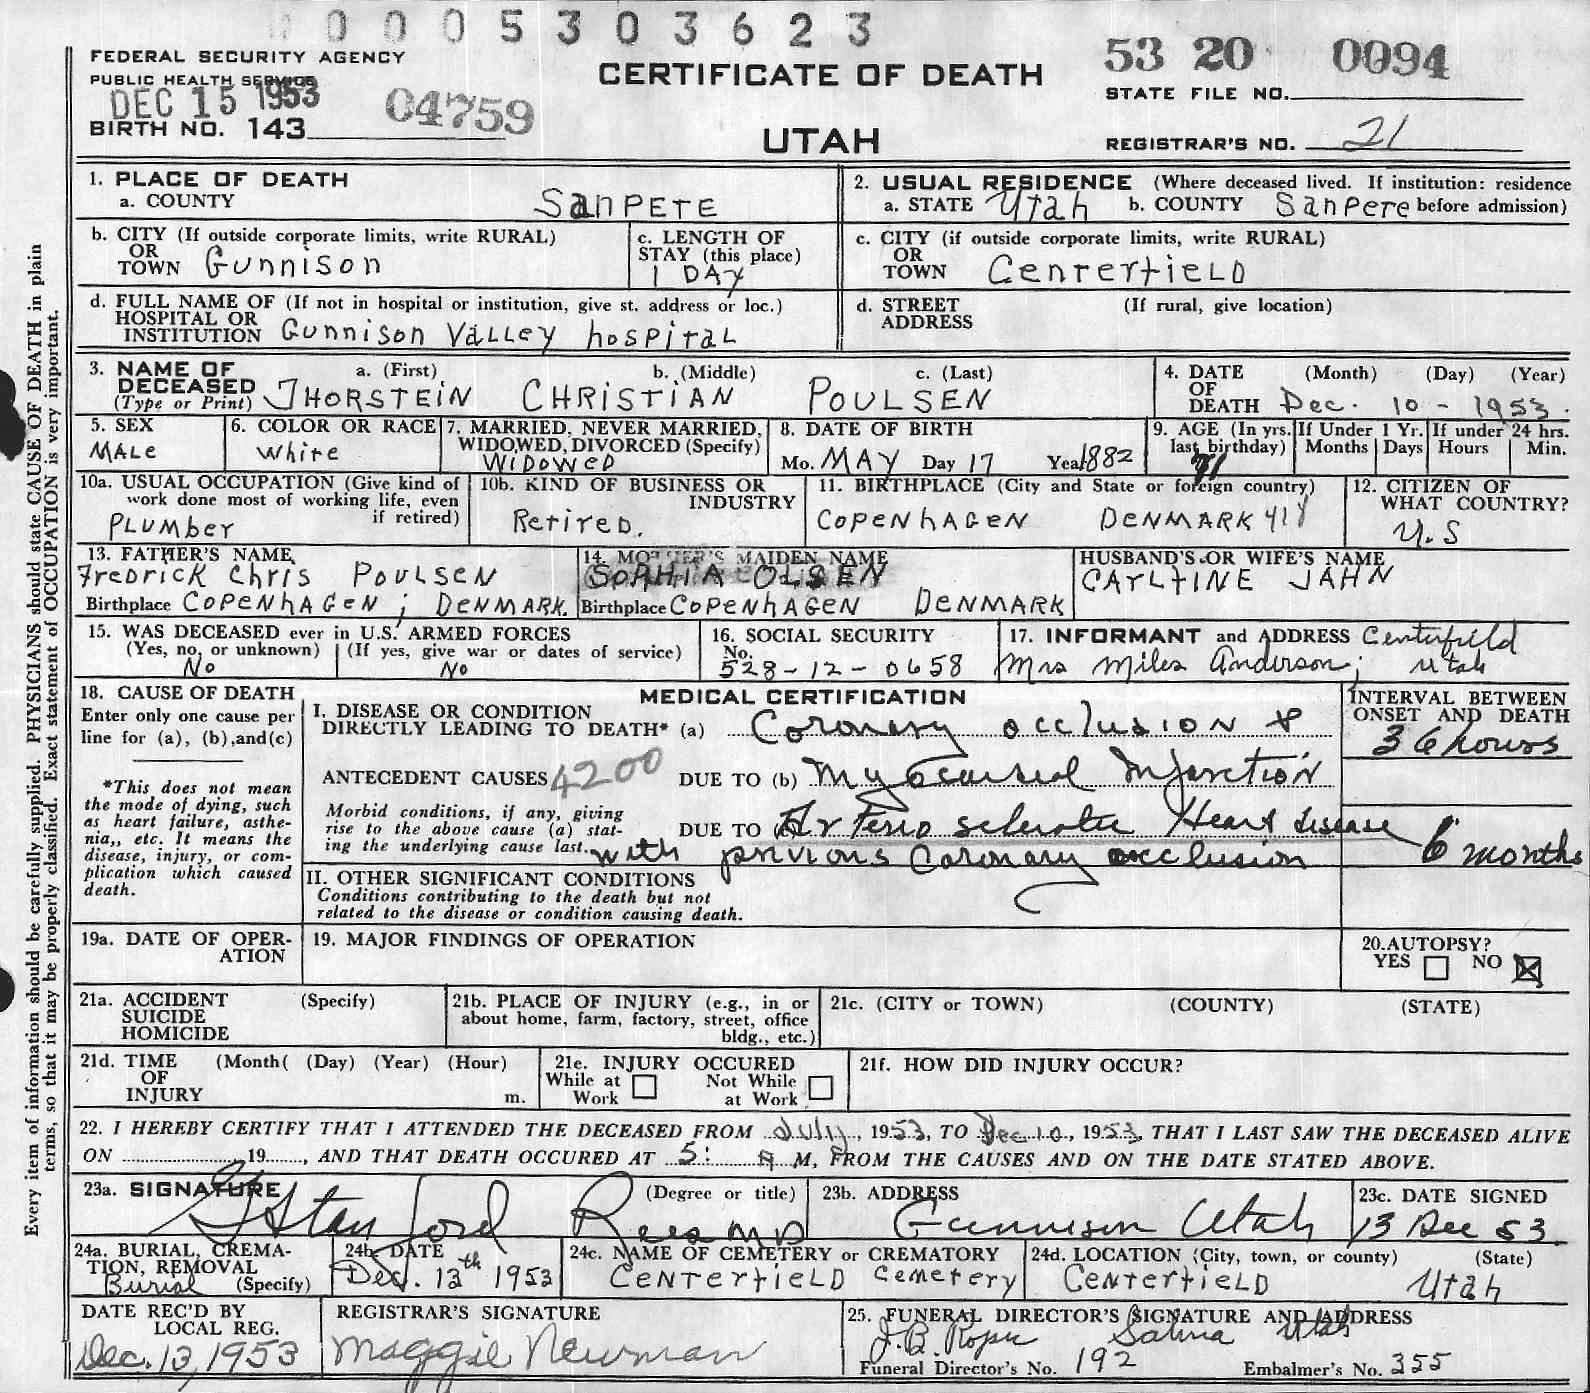 0005303623
FEDERAL SECURITY AGENCY
PUBLIC HEALTH SERVICE
DEC 15 1953
04759
BIRTH NO. 143
CERTIFICATE OF DEATH
UTAH
53 20 0094
STATE FILE NO.
REGISTRAR'S NO. 21
Every item of information should be carefully supplied. PHYSICIANS should state CAUSE OF DEATH in plain
terms, so that it may be properly classified. Exact statement of OCCUPATION is very important.
1. PLACE OF DEATH
a. COUNTY SanPETE
2. USUAL RESIDENCE (Where deceased lived. If institution: residence
a. STATE Utah b. COUNTY Sanpete before admission)
b. CITY (If outside corporate limits, write RURAL)
OR
TOWN Gunnison
c. LENGTH OF
STAY (this place)
1 DAY
c. CITY (if outside corporate limits, write RURAL)
OR
TOWN CenterfiELD
d. FULL NAME OF (If not in hospital or institution, give st. address or loc.)
HOSPITAL OR
INSTITUTION Gunnison Valley hospital
d. STREET (If rural, give location)
ADDRESS
3. NAME OF a. (First) b. (Middle) c. (Last)
DECEASED
(Type or Print) THORSTEIN CHRISTIAN POULSEN
4. DATE (Month) (Day) (Year)
OF
DEATH Dec. 10 - 1953.
5. SEX
MALe
6. COLOR OR RACE
White
7. MARRIED, NEVER MARRIED,
WIDOWED, DIVORCED (Specify)
WIDOWED
8. DATE OF BIRTH
Mo. MAY Day 17 Year 1882
9. AGE (In yrs.
last birthday)
71
If Under 1 Yr.
Months Days
If under 24 hrs.
Hours Min.
10a. USUAL OCCUPATION (Give kind of
work done most of working life, even
if retired)
PLUMBer
10b. KIND OF BUSINESS OR
INDUSTRY
Retired.
11. BIRTHPLACE (City and State or foreign country)
COPENhAGEN DENMARK
12. CITIZEN OF
WHAT COUNTRY?
U.S
13. FATHER'S NAME
FreDRICK Chris POULSEN
Birthplace COPENHAGEN; DENMARK.
14. MOTHER'S MAIDEN NAME
SOPHIA OLSEN
Birthplace COPENhAGEN DENMARK
HUSBAND'S OR WIFE'S NAME
CARLTINE JAHN
15. WAS DECEASED ever in U.S. ARMED FORCES
(Yes, no, or unknown) (If yes, give war or dates of service)
No No
16. SOCIAL SECURITY
No.
528-12-0658
17. INFORMANT and ADDRESS Centerfield
Mrs Miles Anderson; Utah
18. CAUSE OF DEATH
Enter only one cause per
line for (a), (b), and (c)
*This does not mean
the mode of dying, such
as heart failure, asthe-
nia,, etc. It means the
disease, injury, or com-
plication which caused
death.
MEDICAL CERTIFICATION
I. DISEASE OR CONDITION
DIRECTLY LEADING TO DEATH* (a) Coronary occlusion &
ANTECEDENT CAUSES 4200 DUE TO (b) Myocardial Infarction
Morbid conditions, if any, giving
rise to the above cause (a) stat-
ing the underlying cause last.
DUE TO Arteriosclerotic Heart disease
with previous Coronary occlusion
INTERVAL BETWEEN
ONSET AND DEATH
36 hours
6 months
II. OTHER SIGNIFICANT CONDITIONS
Conditions contributing to the death but not
related to the disease or condition causing death.
19a. DATE OF OPER-
ATION
19. MAJOR FINDINGS OF OPERATION
20. AUTOPSY?
YES NO
21a. ACCIDENT (Specify)
SUICIDE
HOMICIDE
21b. PLACE OF INJURY (e.g., in or
about home, farm, factory, street, office
bldg., etc.)
21c. (CITY or TOWN) (COUNTY) (STATE)
21d. TIME (Month( (Day) (Year) (Hour)
OF
INJURY m.
21e. INJURY OCCURED
While at Not While
Work at Work
21f. HOW DID INJURY OCCUR?
22. I HEREBY CERTIFY THAT I ATTENDED THE DECEASED FROM July, 1953, TO Dec 10, 1953, THAT I LAST SAW THE DECEASED ALIVE
ON 19, AND THAT DEATH OCCURED AT 5: A M, FROM THE CAUSES AND ON THE DATE STATED ABOVE.
23a. SIGNATURE (Degree or title)
Stanford Rees MD
23b. ADDRESS
Gunnison Utah
23c. DATE SIGNED
13 Dec 53
24a. BURIAL, CREMA-
TION, REMOVAL
Burial (Specify)
24b. DATE
Dec. 13th 1953
24c. NAME OF CEMETERY or CREMATORY
CENTERfieLD Cemetery
24d. LOCATION (City, town, or county) (State)
CENTERfiELD Utah
DATE REC'D BY
LOCAL REG.
Dec. 13, 1953
REGISTRAR'S SIGNATURE
Maggie Newman
25. FUNERAL DIRECTOR'S SIGNATURE AND ADDRESS
J.B. Salina Utah
Funeral Director's No. 192 Embalmer's No. 355